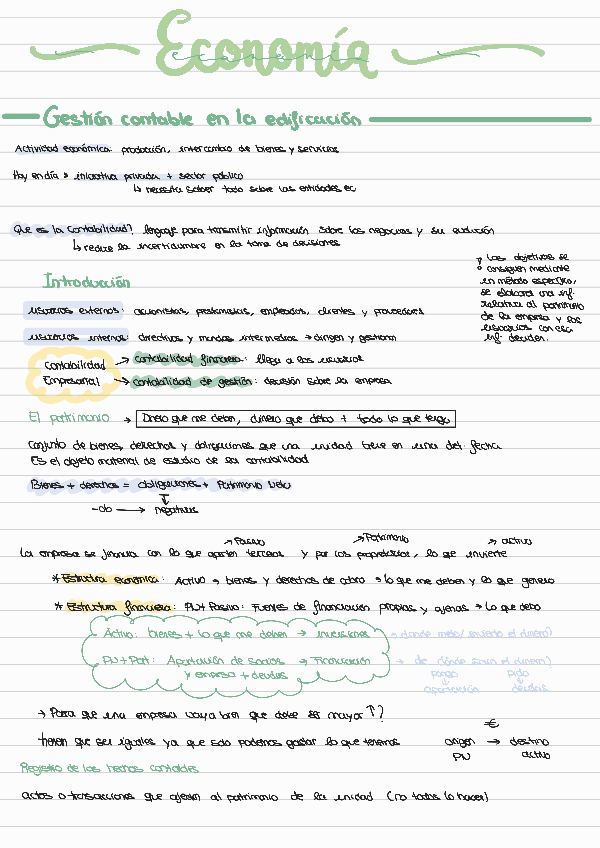 Economía
economía
Gestión contable en la edificación
Actividad económica: producción, intercambio de bienes y servicios
Hoy en día → iniciativa privada + sector público
↳ necesita saber todo sobre las entidades ec
Que es la contabilidad? lenguaje para transmitir información sobre los negocios y su evolución
↳ reduce la incertidumbre en la toma de decisiones
Los objetivos se
consiguen mediante
un método específico,
se elaborará una inf.
relativa al patrimonio
de la empresa y los
usuarios con esa
inf. deciden.
Introducción
usuarios externos: accionistas, prestamistas, empleados, clientes y proveedores
usuarios internos: directivos y mandos intermedios → dirigen y gestionan
Contabilidad
Empresarial
→ contabilidad financiera: llega a los usuarios
→ contabilidad de gestión: decisión sobre la empresa
El patrimonio → Dinero que me deben, dinero que debo + todo lo que tengo
Conjunto de bienes, derechos y obligaciones que una unidad tiene en una det. fecha
Es el objeto material de estudio de la contabilidad
Bienes + derechos = obligaciones + Patrimonio Neto
→ negativas
→ Pasivo → Patrimonio → activo
La empresa se financia con lo que aportan terceros y por los propietarios, lo que invierte
* Estructura económica: Activo → bienes y derechos de cobro → lo que me deben y lo que genero
* Estructura financiera: PN + Pasivo: Fuentes de financiación propias y ajenas → Lo que debo
Activo: bienes + lo que me deben → inversiones → donde meto/invierto el dinero?
PN + Pat: Aportación de socios → Financiación → de dónde saco el dinero?
y empresa + deudas
pongo pido
aportación deudas
→ Para que una empresa vaya bien que debe ser mayor ↑?
tienen que ser iguales ya que solo podemos gastar lo que tenemos
€
origen → destino
PN activo
Registro de los hechos contables
actos o transacciones que afectan al patrimonio de la unidad (no todos lo hacen)